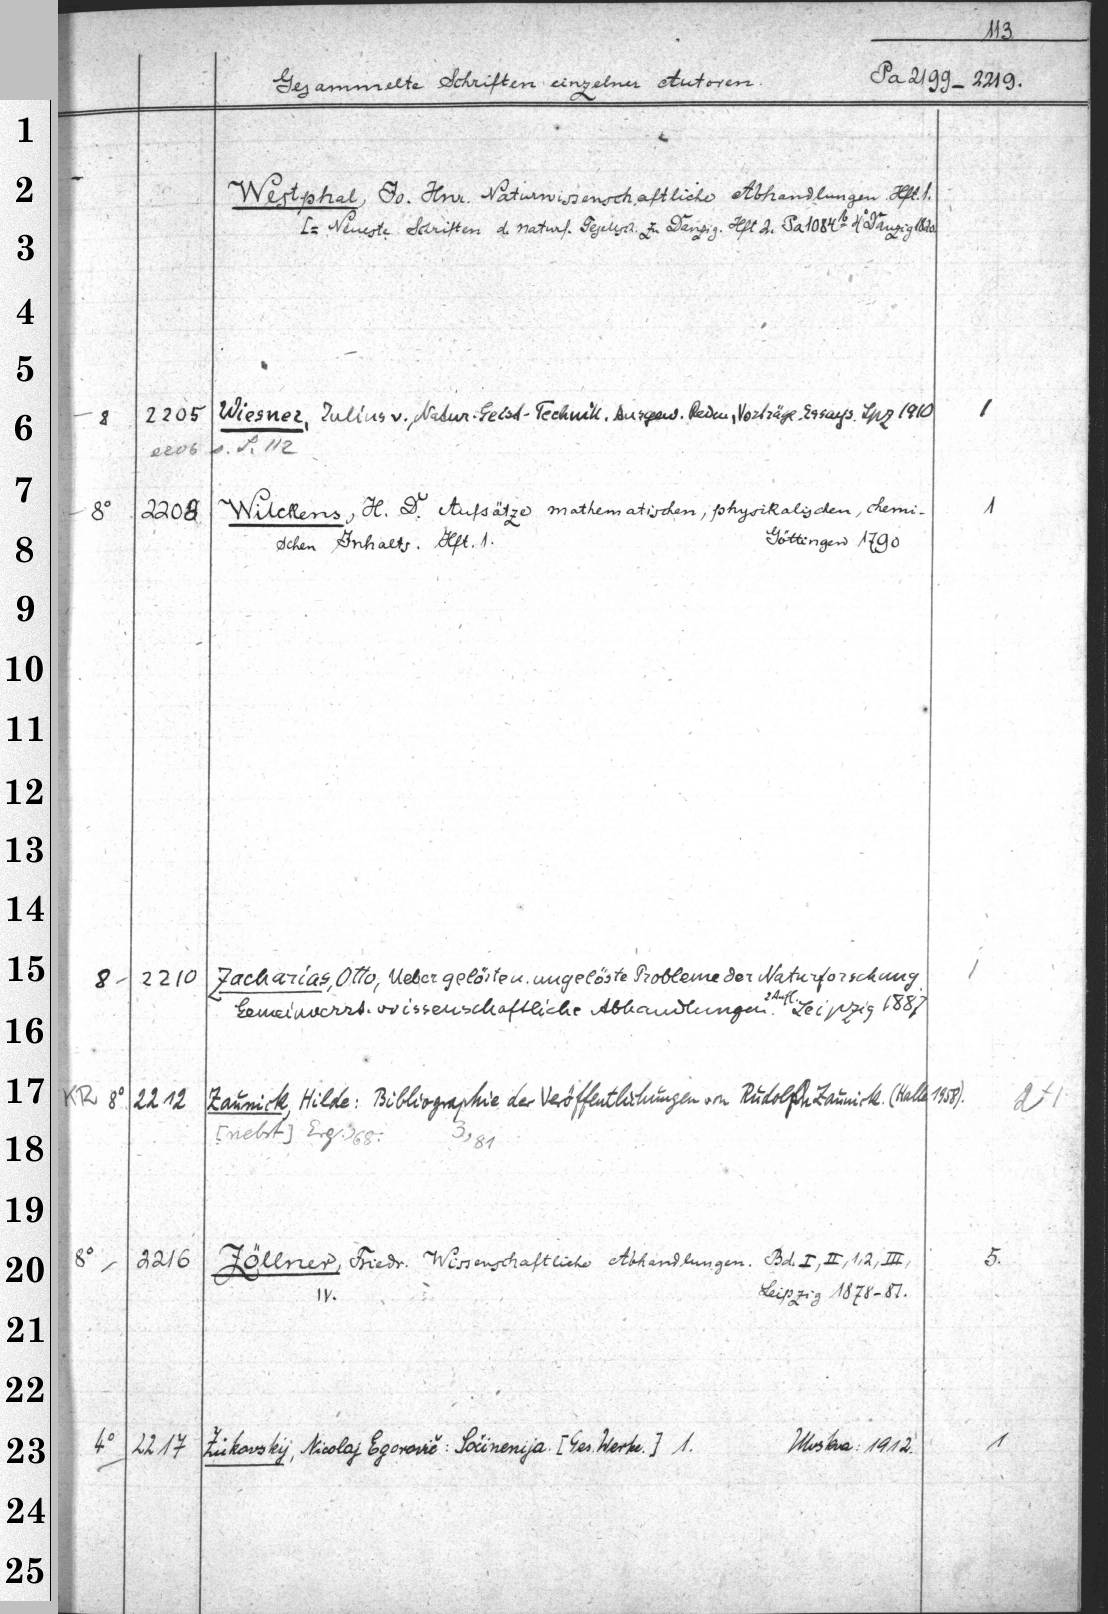 113
Gesammelte Schriften einzelner Autoren. Pa 2199-2219.
1
2 Westphal, Jo. Hnr. Naturwissenschaftliche Abhandlungen. Hft. 1.
3 [= Neueste Schriften d. naturf. Gesellsch. zu Danzig. Hft 2. Pa 1084b 4° Danzig 1820
4
5
6 8 2205 Wiesner, Julius v., Natur-Geist-Technik. Ausgew. Reden, Vorträge, Essays. Lpz 1910 1
2206 s. S. 112
7
- 8° 2208 Wilckens, H. Dr. Aufsätze mathematischen, physikalischen, chemi- 1
8 schen Inhalts. Hft. 1. Göttingen 1790
9
10
11
12
13
14
15 8 - 2210 Zacharias, Otto, Ueber gelöste u. ungelöste Probleme der Naturforschung. 1
Gemeinverst. wissenschaftliche Abhandlungen. 2 Aufl. Leipzig 1887
16
17 KR 8° 2212 Zaunick, Hilde: Bibliographie der Veröffentlichungen von Rudolph Zaunick. (Halle 1958). 2+1
18 [nebst] Erg. 68. 3,81
19
20 8° - 2216 Zöllner, Friedr. Wissenschaftliche Abhandlungen. Bd. I, II, 1,2, III, 5.
IV. Leipzig 1878-81.
21
22
23 4° 2217 Žukovskij, Nicolaj Egorovič: Sočinenija. [Ges. Werke.] 1. Moskva: 1912. 1
24
25